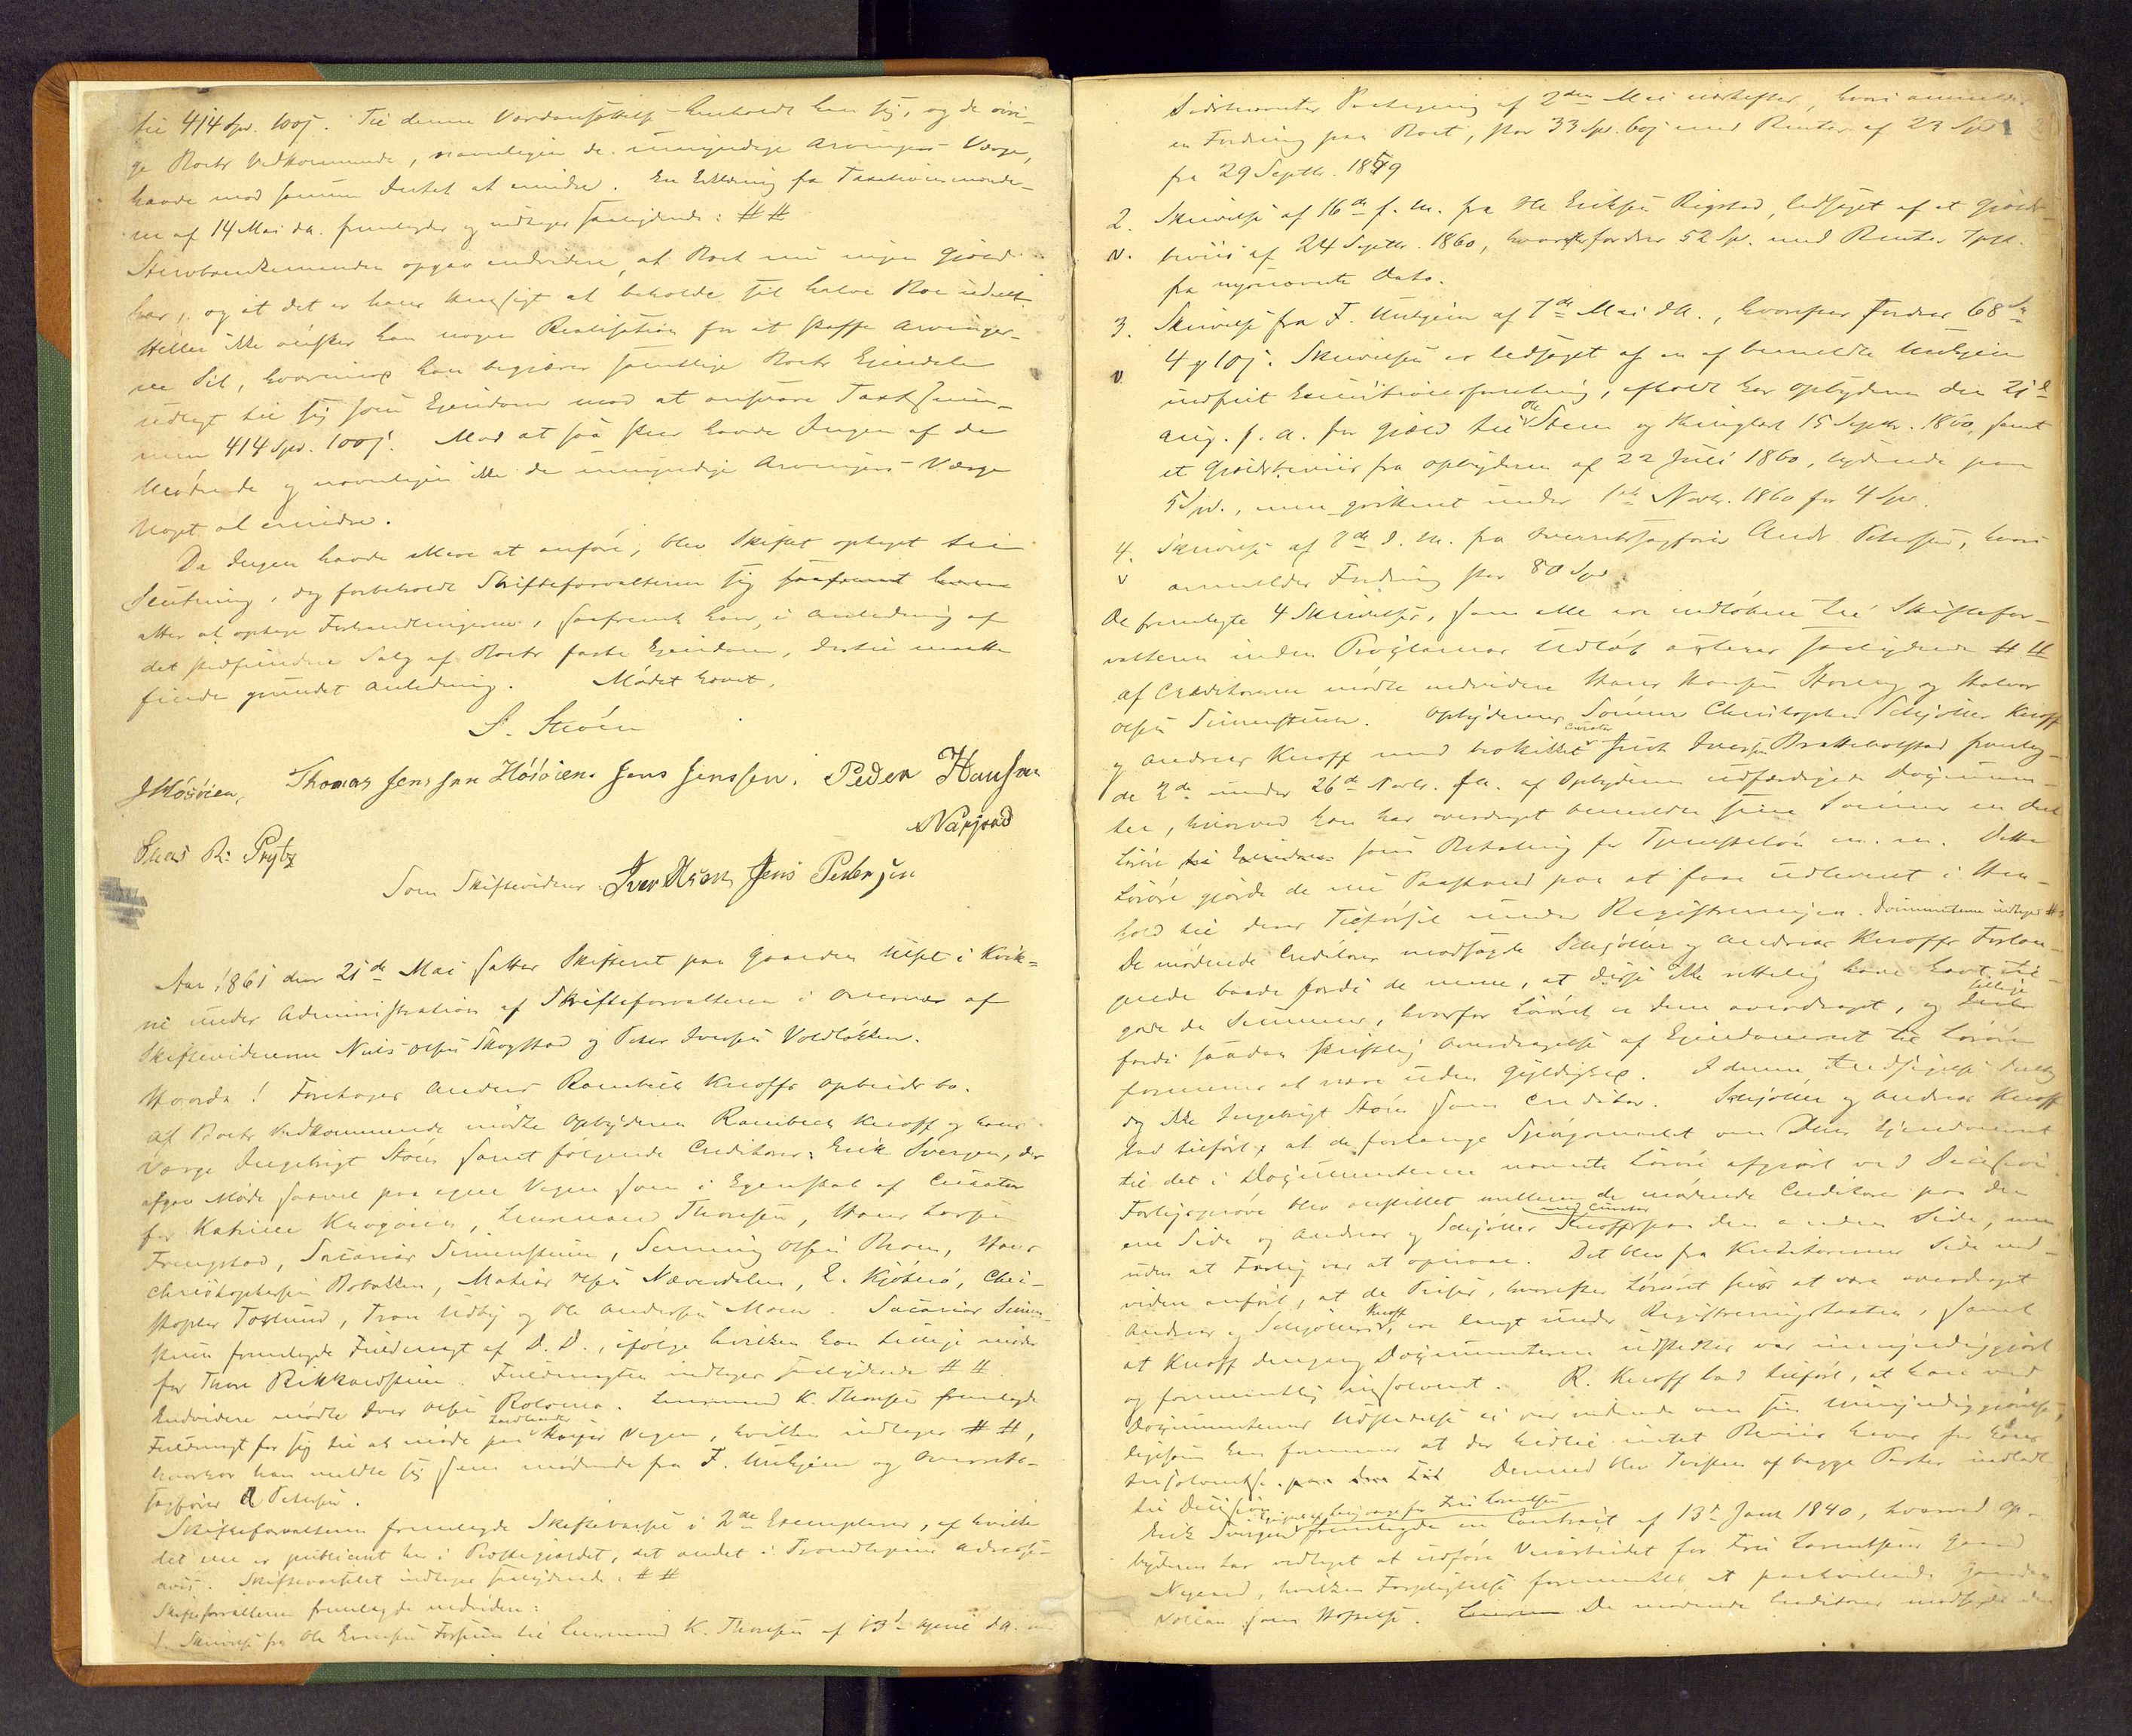 til 414 Spd. 100ſ. Til denne Værdiansættelse henholdt han sig, og de øvri-
ge Boets Vedkommende, navnligen de umyndige Arvingers Værge,
havde mod samme Intet at erindre. En Erklæring fra Taxationsmænde-
ne af 14 Mai d.A. fremlagdes og indtages saalydende: # #
Stervboenkemanden opgav endvidere, at Boet nu ingen Gjæld
har, og at det er hans Hensigt at beholde sit halve Bo udelt.
Heller ikke ønsker han nogen Realisation for at skaffe Arvinger-
ne Sit, hvorimod han begjærer samtlige Boets Eiendele
udlagt til sig som Eiendom mod at ansvare Taxtsum-
men 414 Spd. 100ſ. Mod at saa skeer havde Ingen af de
Mødende og navnligen ikke de umyndige Arvingers Værge
Noget at erindre.
Da Ingen havde Mere at anføre, blev Skiftet optaget til
Slutning, dog forbeholdt Skifteforvalteren sig saafremt
atter at optage Forhandlingerne, saafremt han, i Anledning af
det stedfindende Salg af Boets faste Eiendom, dertil maatte
finde grundet Anledning. Mødet hævet.
S. Støren
J Høsøien, Thomas Jenssen Høsøien. Jens Jenssen. Peder Hansen
Næsjvad
R: Prytz
Som Skiftevidner: Iver Jens Pedersen
Aar 1861 den 21de Mai sattes Skifteret paa Gaarden i Kvik-
ne under Administration af Skifteforvalteren i Overvær af
Skiftevidnerne Niels Olsen Skogstad og Peder Iversen Voldløkken.
Hvorda! Foretages Anders Rambech Knoffs Opbudsbo.
Af Boets Vedkommende mødte Opbyderen Rambech Knoff og hans
Værge Ingebrigt Støen samt følgende Creditorer: Erik Svergen, der
afgav Møde saavel paa egne Vegne som i Egenskab af Curator
for Katrine Krogøien, Lensmand Thoresen, Hans Larsen
Frengstad, Sacarias Simensteen, Olsen Moen, Hans
Christophersen Bobakken, Matias Olsen Næverdalen, E. Kjøbrø, Chri-
stopher Toslund, Tron Udby og Ole Andersen Moen. Sacarias Simen-
steen fremlagde Fuldmagt af D. D., ifølge hvilken han tillige møder
for Thore Rikkardsteen. Fuldmagten indtages saalydende # #
Endvidere mødte Iver Olsen. Lensmand K. Thoresen fremlagde
Fuldmagt for sig til at møde paa Landhandler Vegne, hvilken indtages # #,
hvorhos han meldte sig som mødende fra F. Unhjem og Overrets-
sagfører A Petersen.
Skifteforvalteren fremlagde Skiftevarsel i 2de Exemplarer, af hvilke
det ene er publiceret her i Præstegjældet, det andet i Trondhjems Adresse-
avis. Skiftevarselet indtages saalydende: # #
Skifteforvalteren fremlagde endvidere:
1. Skrivelse fra Ole til Lensmand K. Thoresen af 13de April d.A. med
Sidstnævntes Paategning af 2den Mai næstefter, hvori anmeldes
en Fordring paa Boet, stor 33 Spd. 60ſ med Renter af 23 Spd
fra 29 Septbr. 1859
2. Skrivelse af 16de f. M. fra Ole Eriksen Rigstad, ledsaget af et Gjælds-
v. beviis af 24 Septbr. 1860, hvorefter fordres 52 Sp. med Renter
fra nysnævnte Dato.
3. Skrivelse fra F. Unhjem af 7de Mai d.A., hvorefter fordres 68 Sp
v 4 ℳ 10ſ. Skrivelsen er ledsaget af en af bemeldte Unhjem
indfriet Executionsforretning, afholdt hos Opbyderen den 21de
Aug. f. A. for Gjæld til Ole Støen og thinglæst 15 Septbr. 1860, samt
et Gjældsbeviis fra Opbyderen af 22 Juli 1860, lydende paa
5 Spd., men qvitteret under 1ste Novbr. 1860 for 4 Spd.
4. Skrivelse af 8de d. M. fra Overretssagfører Andr. Petersen, hvori
v anmeldes Fordring stor 80 Spd.
De fremlagte 4 Skrivelser, som alle ere indløbne til Skiftefor-
valteren inden Proclamas Udløb saalydende # #
Af Creditorerne mødte endvidere Hans Hansen og Halvor
Olsen Simensteen. Opbyderens Sønner Christopher Schjøller Knoff
og Andreas Knoff med beskikket Curator Iversen Brattebolstad fremlag-
de 2de under 26de Novbr. f.A. af Opbyderen udfærdigede Documen-
ter, hvorved han har overdraget bemeldte sine Sønner en Deel
Løsøre som Betaling for Tjenesteløn m. m. Dette
Løsøre gjorde de nu Paastand paa at faae udleveret i Hen-
hold til deres Tilførsel under Registreringen. Documenterne indtages # #
De mødende Creditorer modsagde Schjøller og Andreas Knoffs Forlan-
gende baade fordi de mene, at disse ikke rettelig have havt til-
gode de Summer, hvorfor Løsøret er dem overdraget, og tillige
fordi saadan skriftlig Overdragelse af Eiendomsret til Løsøre
formenes at være uden Gyldighed. I denne Indsigelse deeltog
dog ikke Ingebrigt Støen som Creditor. Schjøller og Andreas Knoff
lod tilføre, at de forlange Spørgsmaalet om deres Eiendomsret
til det i Documenterne nævnte Løsøre afgjort ved Decision.
Forligsprøve blev anstillet mellem de mødende Creditorer paa den
ene Side og Andreas og Schjøller Knoff med Curator paa den anden Side, men
uden at Forlig var at opnaae. Det blev fra Kreditorernes Side end-
videre anført, at de Priser, hvorefter Løsøret sees at være overdraget
Andreas og Schjøller Knoff, ere langt under Registreringstaxten, samt
at Knoff dengang Documenterne udstedtes var umyndiggjort
og formeentlig insolvent. R. Knoff lod tilføre, at han ved
Documenternes Udstedelse ei var vidende om sin Umyndiggjørelse,
ligesom han formener at der hidtil intet Beviis haves for hans
Insolvents. Dermed blev Tvisten af begge Parter indladt
til Decision.
Erik Svergen fremlagde en Contract af 13de Janr 1840, hvorved Op-
byderen har vedtaget at udføre Veiarbeidet for Fru Lorentzens Gaard
Nygaard, hvilken Forpligtelse formentes at paahvile Gaarden
Vollan som Heftelse. De mødende Creditorer modsagde